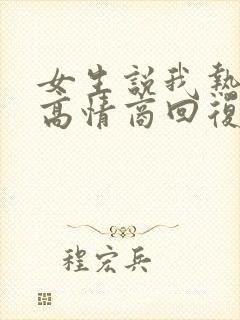 女生說我熱
高情商回復
程宏兵